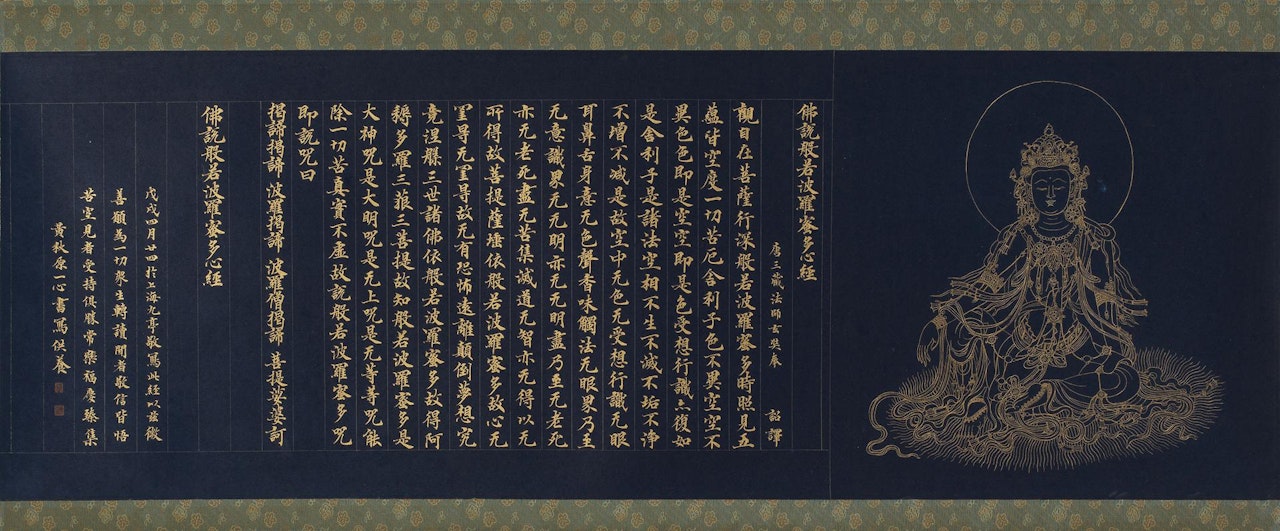 佛說般若波羅蜜多心經
唐三藏法師玄奘奉 詔譯
觀自在菩薩行深般若波羅蜜多時照見五
蘊皆空度一切苦厄舍利子色不異空空不
異色色即是空空即是色受想行識亦復如
是舍利子是諸法空相不生不滅不垢不淨
不增不減是故空中无色无受想行識无眼
耳鼻舌身意无色聲香味觸法无眼界乃至
无意識界无无明亦无无明盡乃至无老死
亦无老死盡无苦集滅道无智亦无得以无
所得故菩提薩埵依般若波羅蜜多故心无
罣㝵无罣㝵故无有恐怖遠離顛倒夢想究
竟涅槃三世諸佛依般若波羅蜜多故得阿
耨多羅三藐三菩提故知般若波羅蜜多是
大神咒是大明咒是无上咒是无等等咒能
除一切苦真實不虛故說般若波羅蜜多咒
即說咒曰
揭諦揭諦 波羅揭諦 波羅僧揭諦 菩提娑婆訶
佛說般若波羅蜜多心經
戊戌四月廿四於上海九亭敬寫此經以茲微
善願為一切眾生轉讀聞者敬信皆悟
苦空見者受持俱勝常樂福慶臻集
黃秋原一心書寫供養